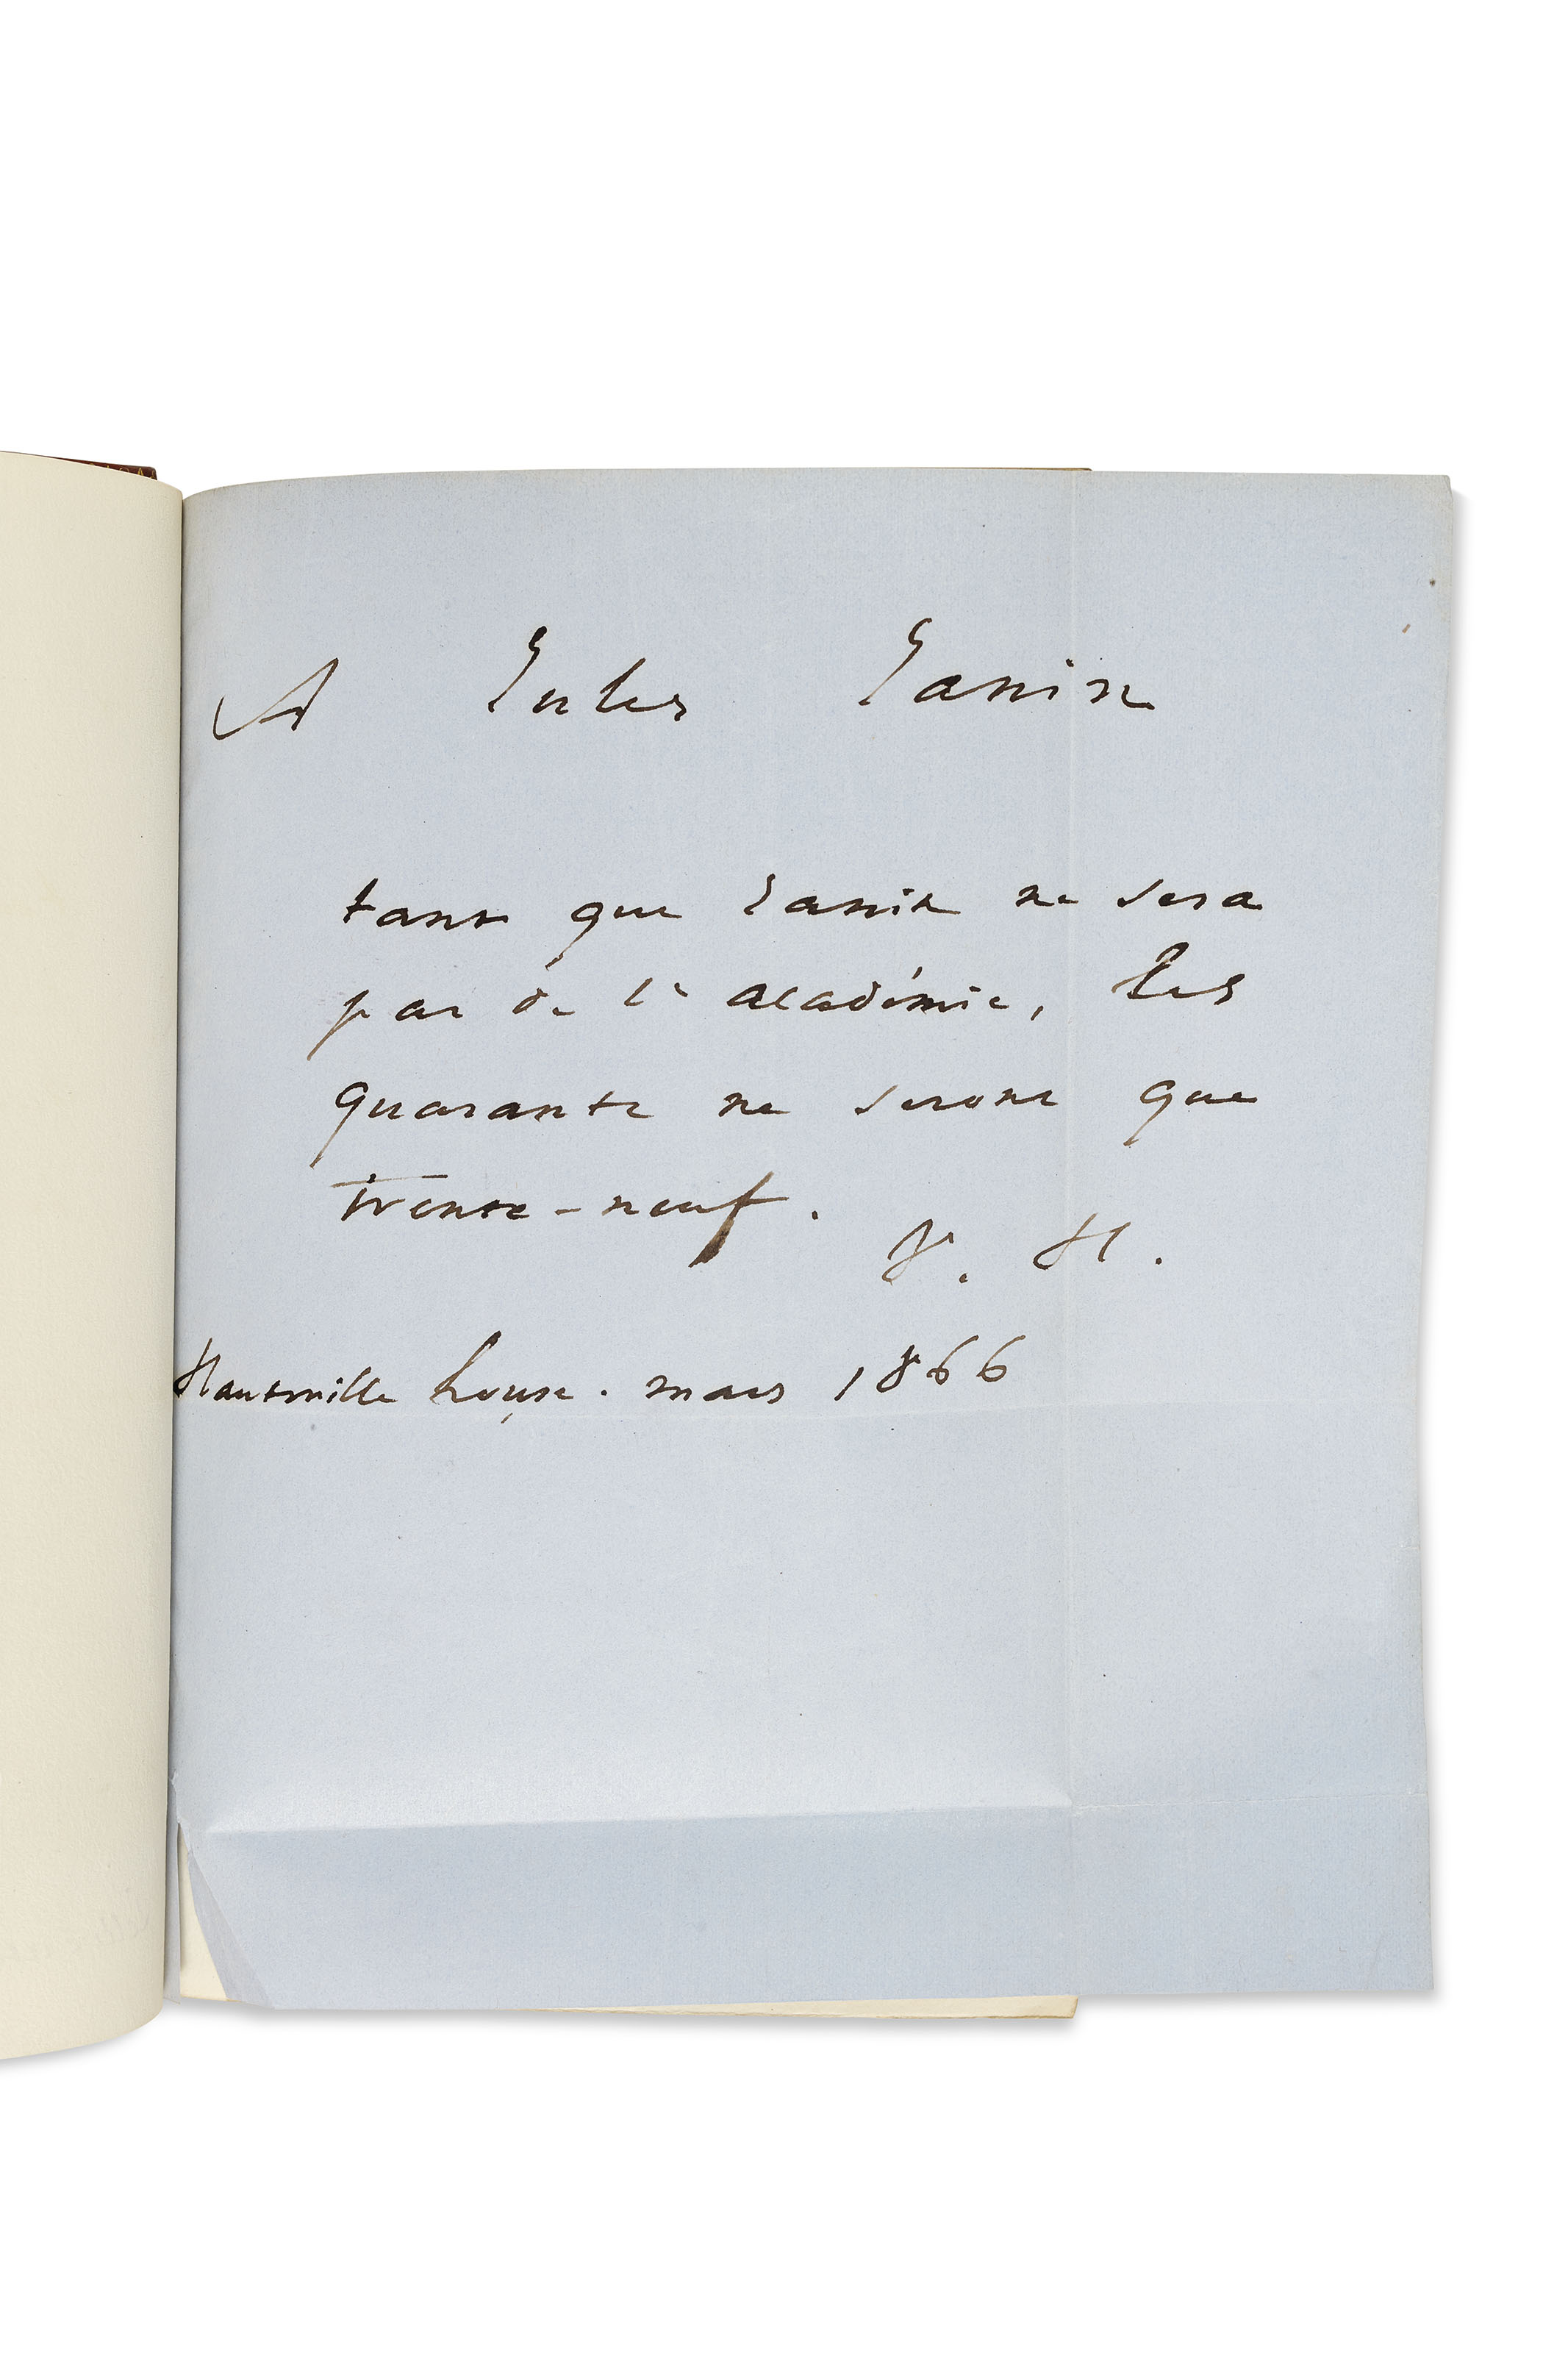 A Jules Janin
tant que Janin ne sera
pas de l'académie, les
quarante ne seront que
trente-neuf.
V. H.
Hauteville house. mars 1866